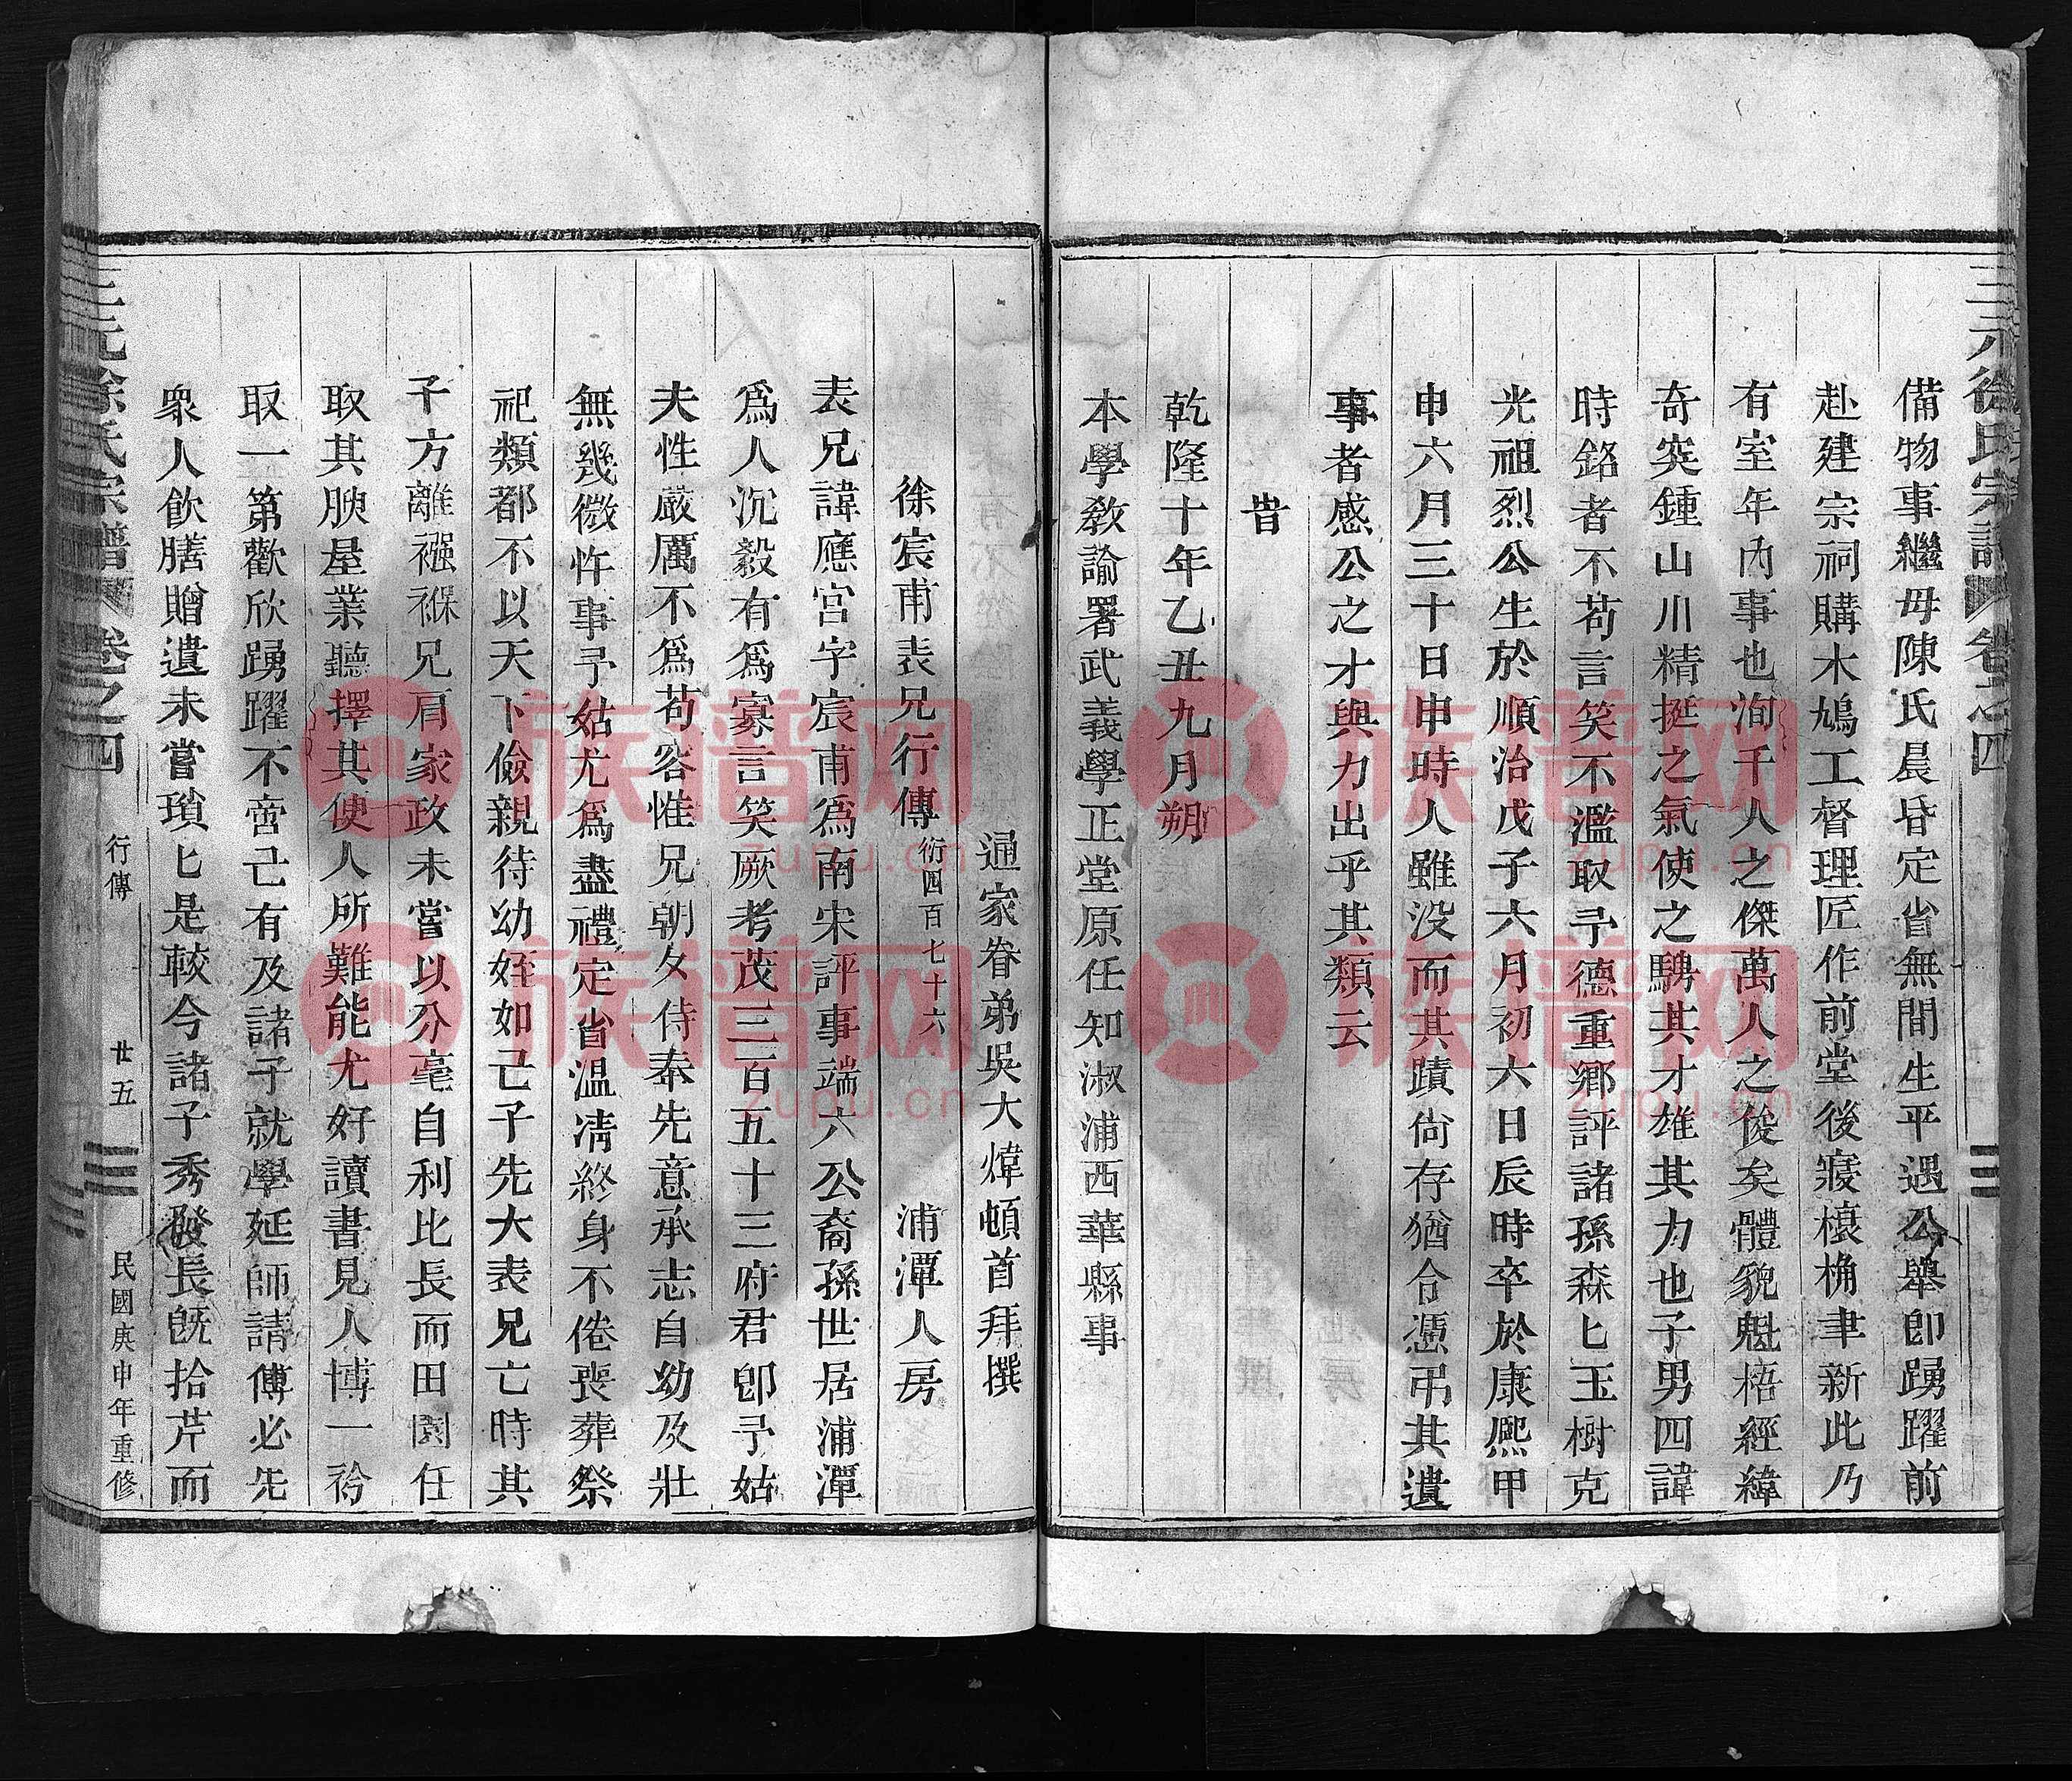 三元徐氏宗譜
卷之四
備物事繼母陳氏晨昏定省無間生平遇公舉卽踴躍前
赴建宗祠購木鳩工督理匠作前堂後寢榱桷聿新此乃
有室年內事也洵千人之傑萬人之俊矣體貌魁梧經緯
奇突鍾山川精挺之氣使之騁其才雄其力也子男四諱
時銘者不苟言笑不濫取予德重鄉評諸孫森匕玉樹克
光祖烈公生於順治戊子六月初六日辰時卒於康熙甲
申六月三十日申時人雖没而其蹟尙存猶合憑弔其遺
事者感公之才與力出乎其類云
旹
乾隆十年乙丑九月朔
本學敎諭署武義學正堂原任知淑浦西華縣事
通家眷弟吳大煒頓首拜撰
徐宸甫表兄行傳 衍四百七十六 浦潭人房
表兄諱應宮字宸甫爲南宋評事端六公裔孫世居浦潭
爲人沉毅有爲寡言笑厥考茂三百五十三府君卽予姑
夫性嚴厲不爲苟容惟兄朝夕侍奉先意承志自幼及壯
無幾微忤事予姑尤爲盡禮定省温凊終身不倦喪葬祭
祀類都不以天下儉親待幼姪如己子先大表兄亡時其
子方離襁褓兄肩家政未嘗以分毫自利比長而田園任
取其腴屋業聽擇其便人所難能尤好讀書見人博一衿
取一第歡欣踴躍不啻己有及諸子就學延師請傅必先
衆人飮膳贈遺未嘗瑣匕是較今諸子秀發長旣拾芹而
三元徐氏宗譜
卷之四
行傳
廿五
民國庚申年重修
族谱网
zupu.cn
族谱网
zupu.cn
族谱网
zupu.cn
族谱网
zupu.cn